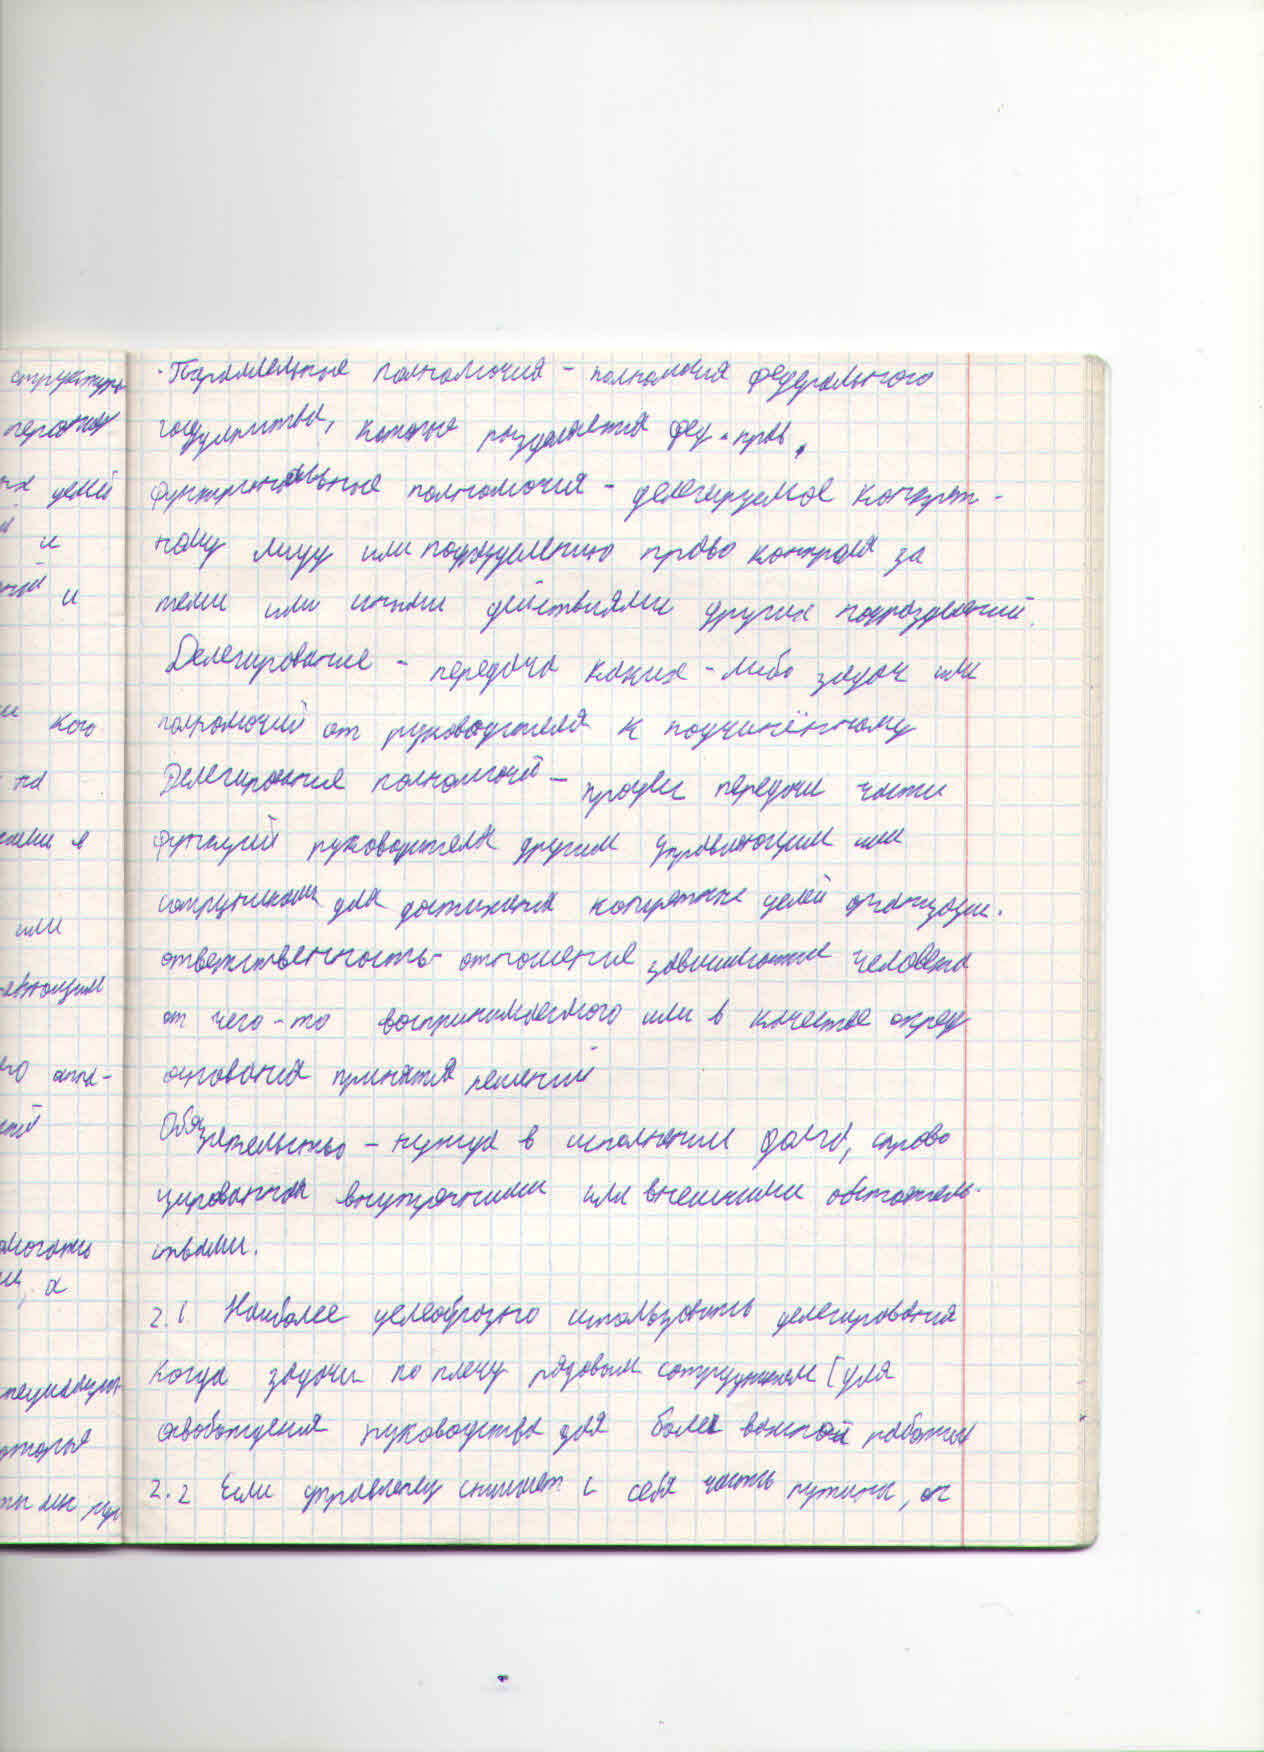 структуры
· Параллельные полномочия – полномочия федерального
государства, которые разделяется фед. прав.
целей
функциональные полномочия – делегируемое конкрет-
и
ному лицу или подразделению право контроля за
и
теми или иными действиями других подразделений.
Делегирование – передача каких-либо задач или
кого
полномочий от руководителя к подчинённому
на
Делегирование полномочий – процесс передачи части
функций руководителя другим управляющим или
или
сотрудникам для достижения конкретных целей организации.
ответственность – отношение зависимости человека
от чего-то воспринимаемого или в качестве опред
аппа-
основания принятия решений
Обязательство – нужда в исполнении долга, спрово
цированная внутренними или внешними обстоятель-
ствами.
а
2.1 Наиболее целеобразно использовать делегирования
когда задачи по плечу рядовым сотрудникам (для
освобождения руководства для более важной работы
2.2 Если управленец снимает с себя часть рутины, он